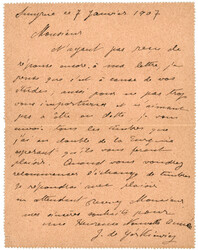 Smyrne le 7 Janvier 1907
Monsieur
N'ayant pas reçu de
réponse encore, à ma lettre, je
pense que c'est à cause de vos
études, aussi pour ne pas trop
vous importuner et n'aimant
pas à être en dette, je vous
envoie tous les timbres que
j'ai en double de la Turquie
espérant que cela vous fera
plaisir. Quand vous voudrez
recommencer l'échange de timbres
je répondrai avec plaisir
en attendant Monsieur
mes sincères souhaits pour
une Heureuse Année
J. de